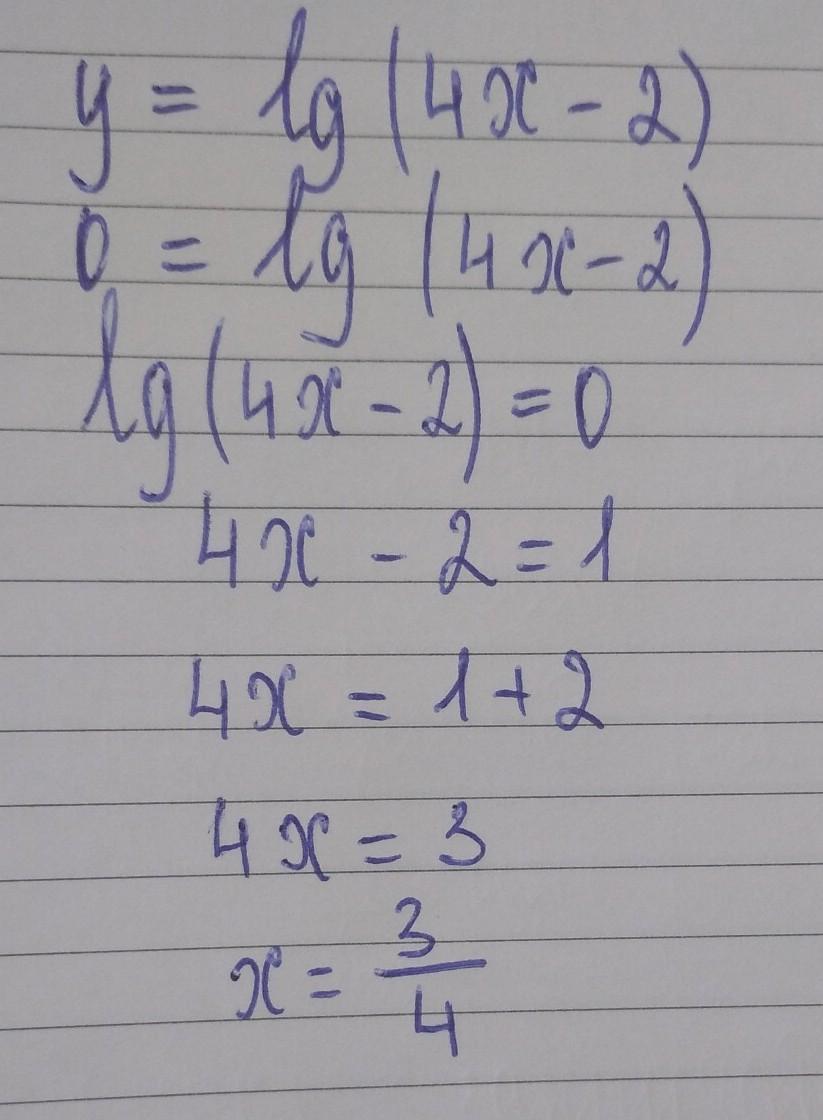 y = lg (4x - 2)
0 = lg (4x - 2)
lg (4x - 2) = 0
4x - 2 = 1
4x = 1 + 2
4x = 3
x = 3/4